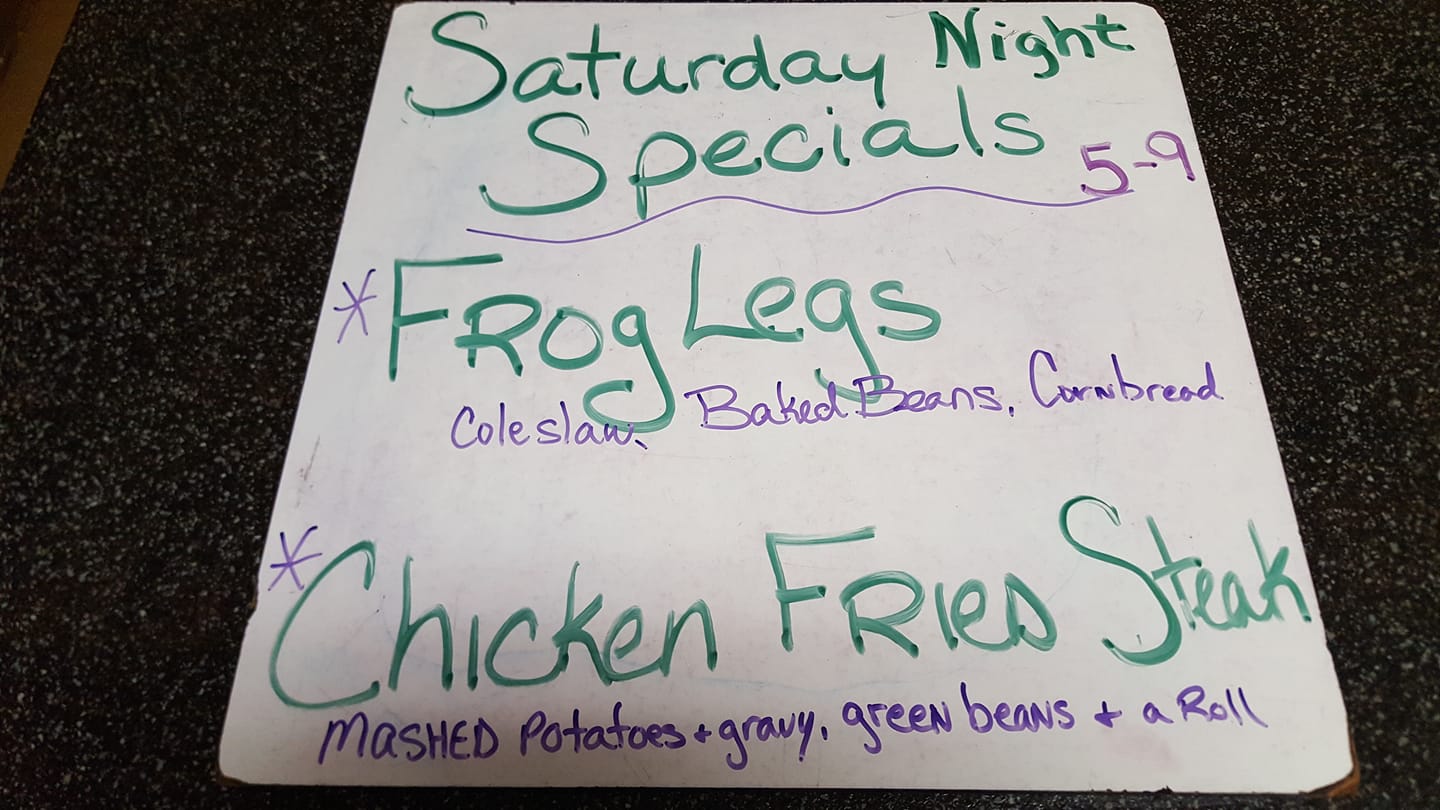 Saturday Night
Specials 5-9
* Frog Legs
Coleslaw, Baked Beans, Cornbread
* Chicken Fried Steak
Mashed Potatoes + gravy, green beans + a Roll